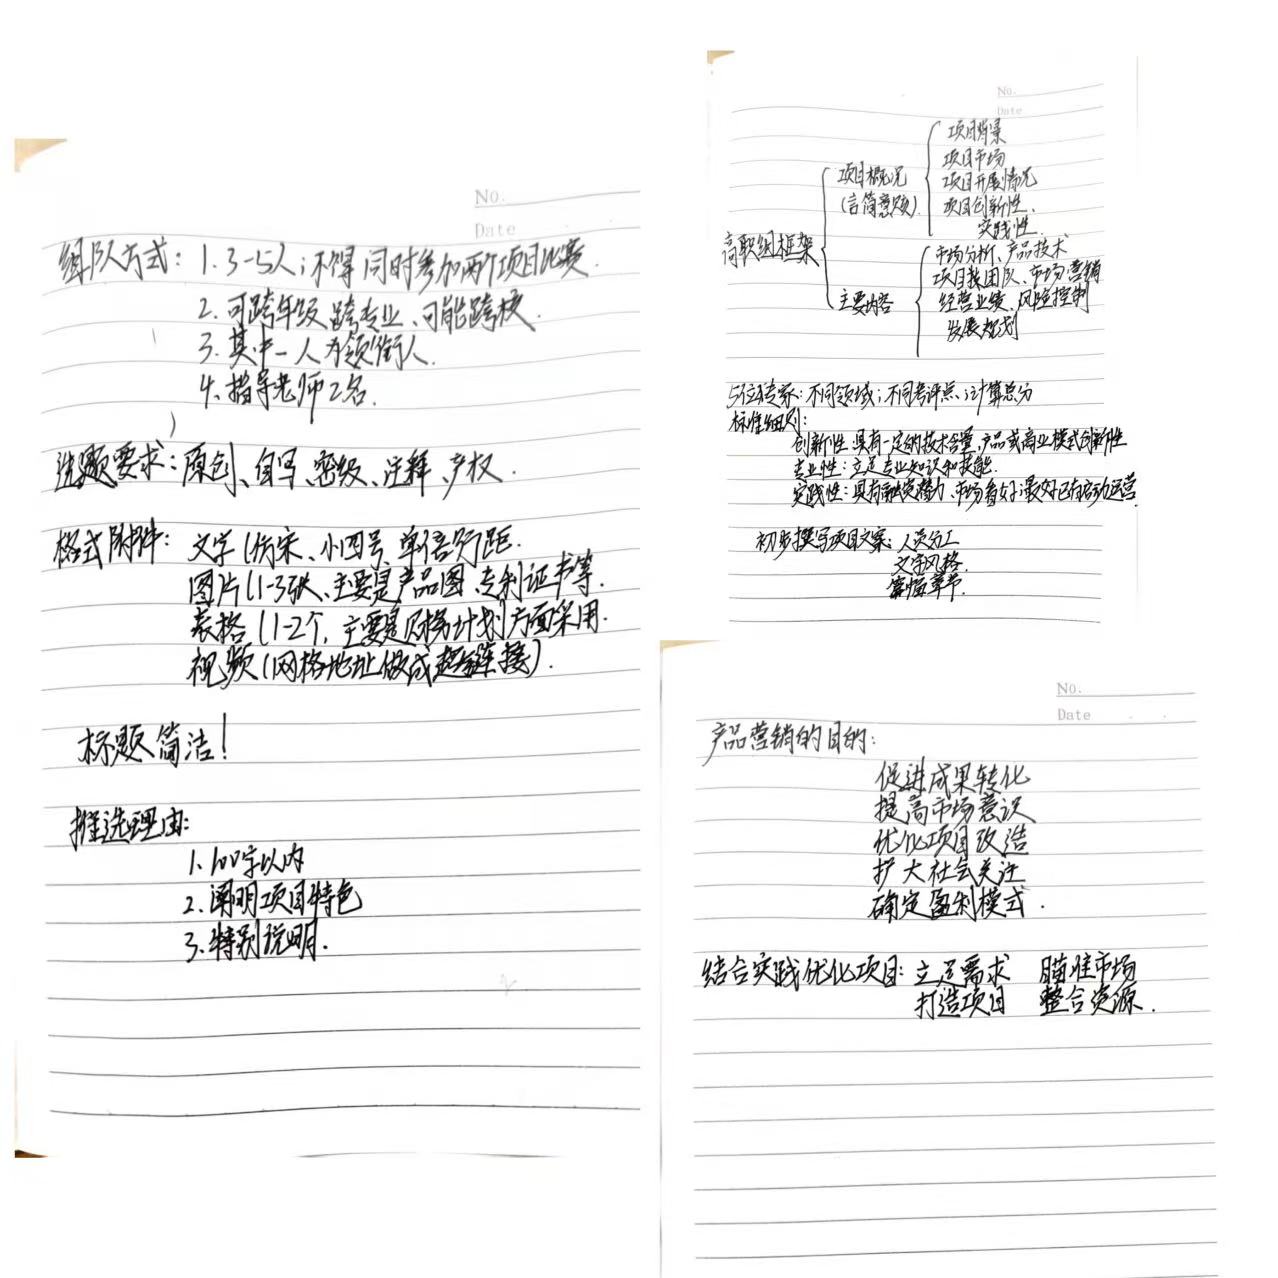 No.
Date
组队方式：1.3-5人；不得同时参加两个项目比赛.
2.可跨年级、跨专业、可能跨校.
3.其中一人为领衔人.
4.指导老师2名.
选题要求：原创、自写、密级、注释、产权.
格式附件：文字（仿宋、小四号、单倍行距.
图片（1-3张、主要是产品图、专利证书等.
表格（1-2个，主要是财务计划方面采用.
视频（网格地址做成超链接）.
标题简洁！
推选理由：
1.100字以内
2.阐明项目特色
3.特别说明.
No.
Date
高职组框架
项目概况
（言简意赅）
项目背景
项目市场
项目开展情况
项目创新性、
实践性.
主要内容
市场分析、产品技术
项目团队、市场营销
经营业绩、风险控制
发展规划
5位专家：不同领域；不同考评点、计算总分
标准细则：
创新性：具有一定的技术含量，产品或商业模式创新性
专业性：立足专业知识和技能.
实践性：具有融资潜力、市场看好；最好已有启动运营.
初步撰写项目文案：人员分工
文字风格.
篇幅章节.
No.
Date
产品营销的目的：
促进成果转化
提高市场意识
优化项目改造
扩大社会关注
确定盈利模式.
结合实践优化项目：立足需求 瞄准市场
打造项目 整合资源.